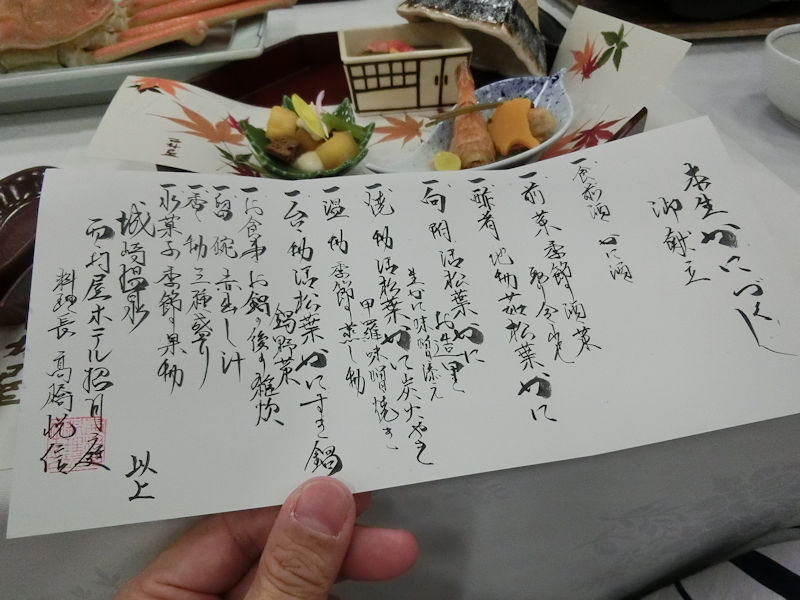 本生かにづくし
御献立
一食前酒 かに酒
一前菜 季節の酒菜
取り合せ
一酢肴 地物茹松葉かに
一向附 活松葉かに
お造里
生かに味噌添え
一焼物 活松葉かに炭火やき
甲羅味噌焼き
一温物 季節の蒸し物
一台物 活松葉かにすき鍋
鍋野菜
一お食事 お鍋の後の雑炊
一留椀 赤出し汁
一香の物 三種盛り
一水菓子 季節の果物
以上
城崎温泉
西村屋ホテル招月庭
料理長 高橋悦信